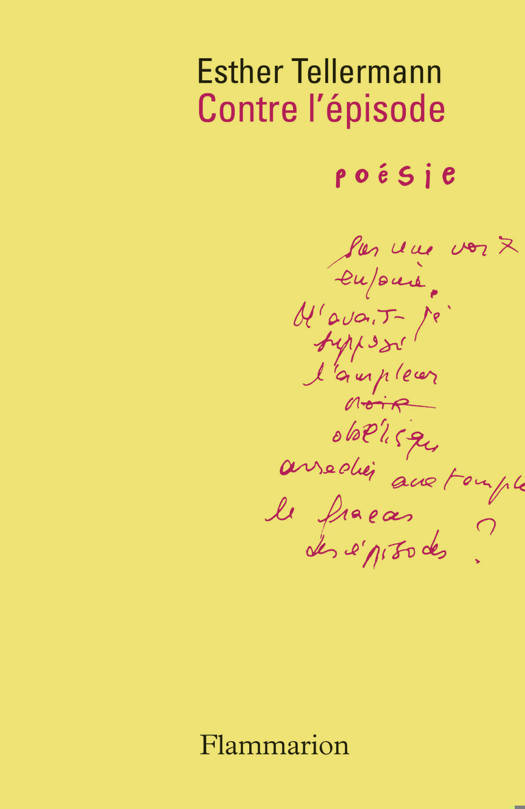 Esther Tellermann
Contre l'épisode
poésie
Sur une voix
enfouie.
N'avait-je
supposé
l'ampleur
noire
oblique
arrachée aux temples
le fracas
des épisodes ?
Flammarion